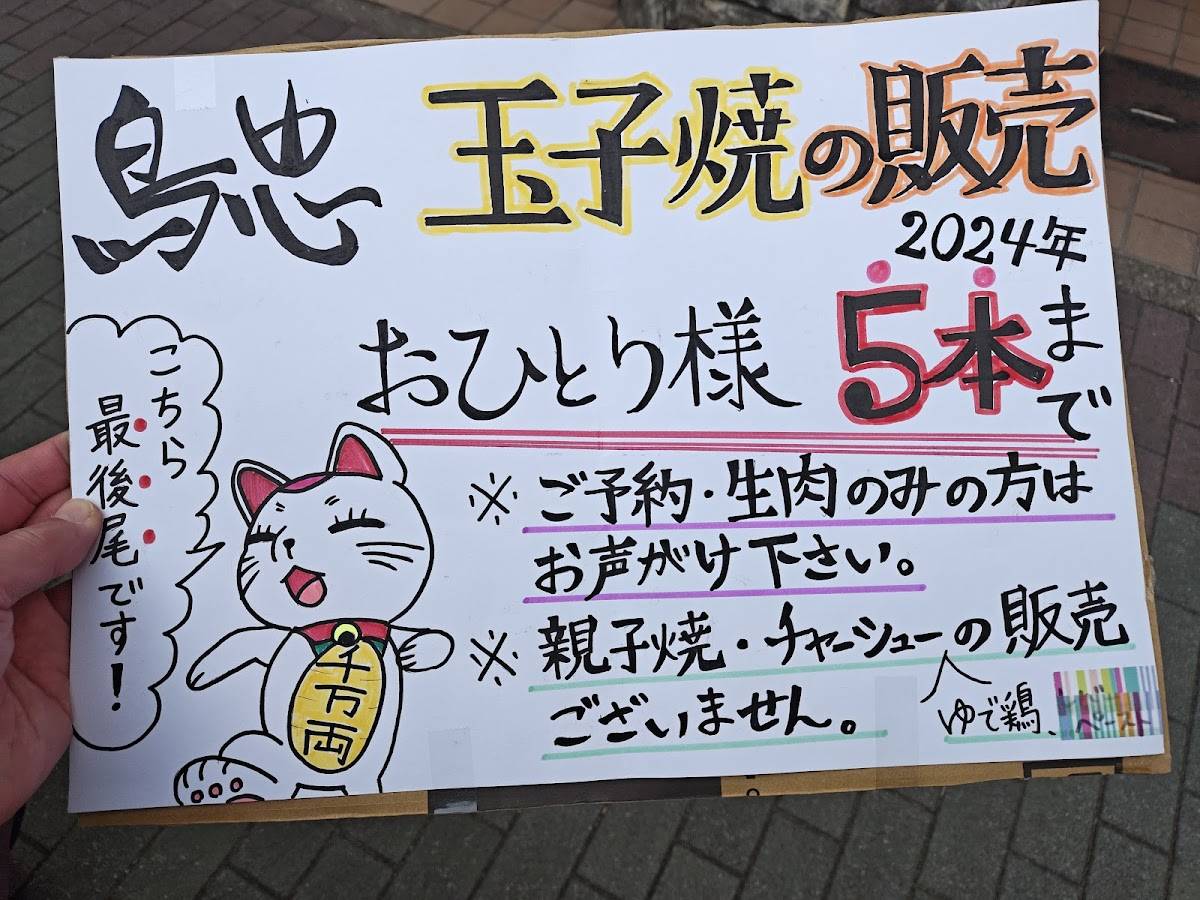 鳥忠
玉子焼の販売
2024年
おひとり様 5本まで
※ご予約・生肉のみの方は
お声がけ下さい。
※親子焼・チャーシューの販売
ございません。
ゆで鶏、
こちら
最後尾です!
千万両